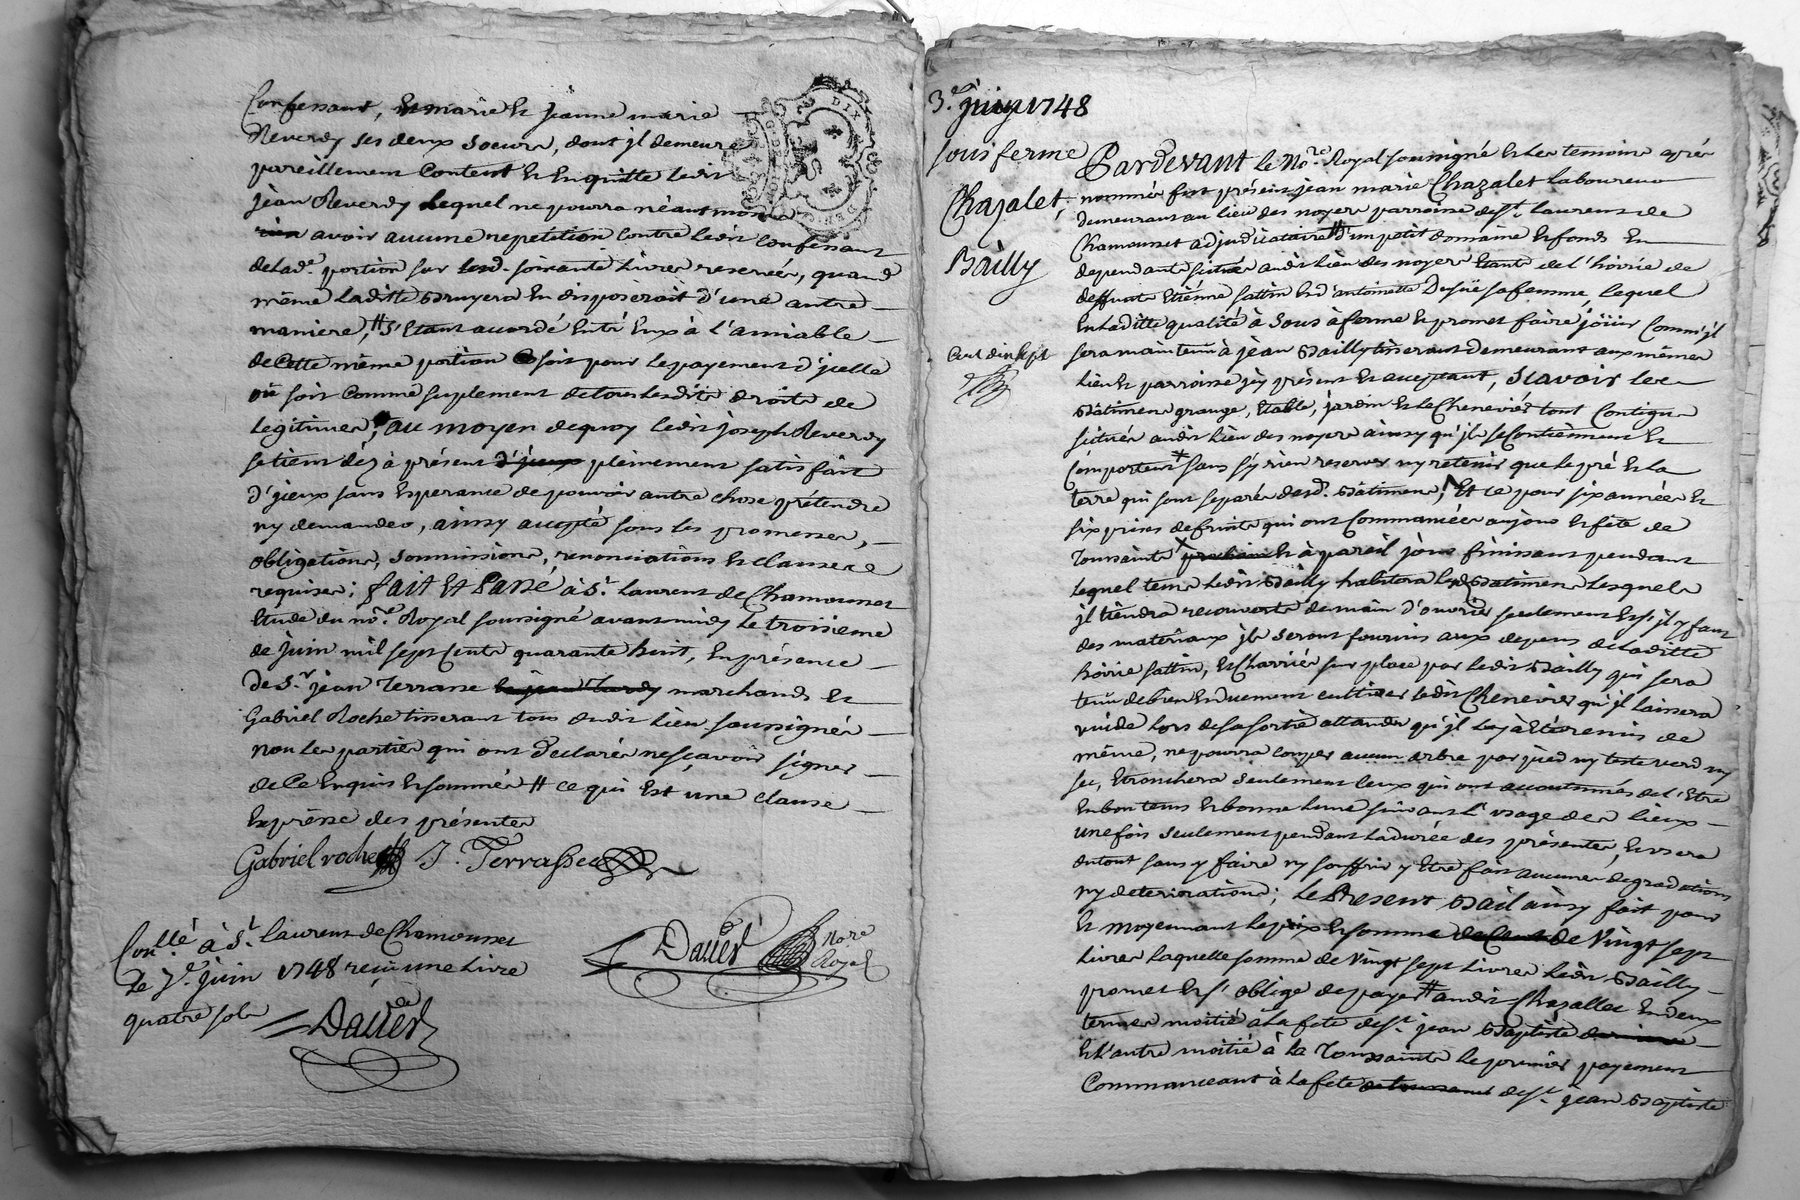 Confessant, et marie et jeanne marie
Reverdy ses deux soeurs, dont jl demeure
pareillement Content et En quitte ledit
jean Reverdy lequel ne pourra néantmoins
rien avoir aucune repetition contre ledit confessant
de lad.e portion sur lesd. soixante livres reservées, quand
même laditte Bruyera En disposeroit d'une autre
maniere, # s'Etant accordé Entr'Eux à l'amiable
de Cette même portion soit pour le payement d'jcelle
ou soit Comme suplement de tous lesdits droits de
legitimes, au moyen dequoy ledit joseph Reverdy
se tient dez à présent d'jceux pleinement satisfait
d'jceux sans Esperance de pouvoir autre chose prétendre
ny demander, ainsy accepté sous les promesses,
obligations, soumissions, renonciations et clauses
requises; fait et Passé à St. laurent de Chamousset
Etude du no.re Royal soussigné avant midy le troisieme
de juin mil sept Cents quarante huit, En présence
de S.r jean Terrasse marchand et
Gabriel Roche tisserant tous dudit lieu soussignés
non les parties qui ont declarés ne sçavoir signer
de Ce Enquis et sommés # ce qui Est une clause
Expresse des présentes
Gabriel roche J. Terrasse
Con.llé à St. laurent de Chamousset
le 7.e juin 1748 reçu une livre
quatre sols
Dauer
Dauer No.re Royal
DIX
3.e juin 1748
sous ferme
Chazalet,
Bailly
Cent dix sept
Pardevant le No.re Royal soussigné et les temoins après
nommés fut présent jean marie Chazalet laboureur
demeurant au lieu des noyers parroisse de St. laurent de
Chamousset adjudicataire # d'un petit domaine et fonds En
dependants situés audit lieu des noyers Etants de l'hoirie de
deffunts Etiénne sattin et d'antoinette sa femme, lequel
En laditte qualité à sous à fermé et promet faire joüir Comm'jl
sera maintenu à jean Bailly tisserant demeurant aux mêmes
lieu et parroisse jcy présent et acceptant, sçavoir les
Bâtimens grange, Etable, jardin et le Chenevier tout Contigus
situés audit lieu des noyers ainsy qu'jls se Contiennent et
Comportent # sans s'y rien reserver ny retenir que le pré et la
terre qui sont separés desd. Bâtimens, Et ce pour six années et
six prises de fruits qui ont Commancées aujour et fête de
Toussaints prochain et à pareil jour finissant pendant
lequel tems ledit Bailly habitera lesd. Batimens lesquels
jl tiendra recouverts de main d'ouvrier seulement et s'jl y faut
des materiaux jls seront fournis aux depens de laditte
hoirie sattin, et charriés sur place par ledit Bailly qui sera
tenu de bien En duement cultiver ledit Chenevier qu'jl laissera
vuide lors de sa sortie attandu qu'jl luy à Eté remis de
même, ne pourra couper aucun arbre par pied ny teste verd ny
sec, Etronchera seulement Ceux qui ont accoutumés de l'Etre
En bon tems et bonne lune suivant l'usage des lieux
une fois seulement pendant la durée des présentes, et usera
du tout sans y faire ny souffrir y Etre fait aucunes degradations
ny deteriorations; le Present Bail ainsy fait pour
et moyennant le prix et somme de Cent de Vingt sept
livres laquelle somme de Vingt sept livres ledit Bailly
promet et s'oblige de payer # audit Chazallet En deux
termes moitié à la fete de St. jean Baptiste
et l'autre moitié à la Toussaints le premier payement
Commanceant à la fete de toussaint de St. jean Baptiste